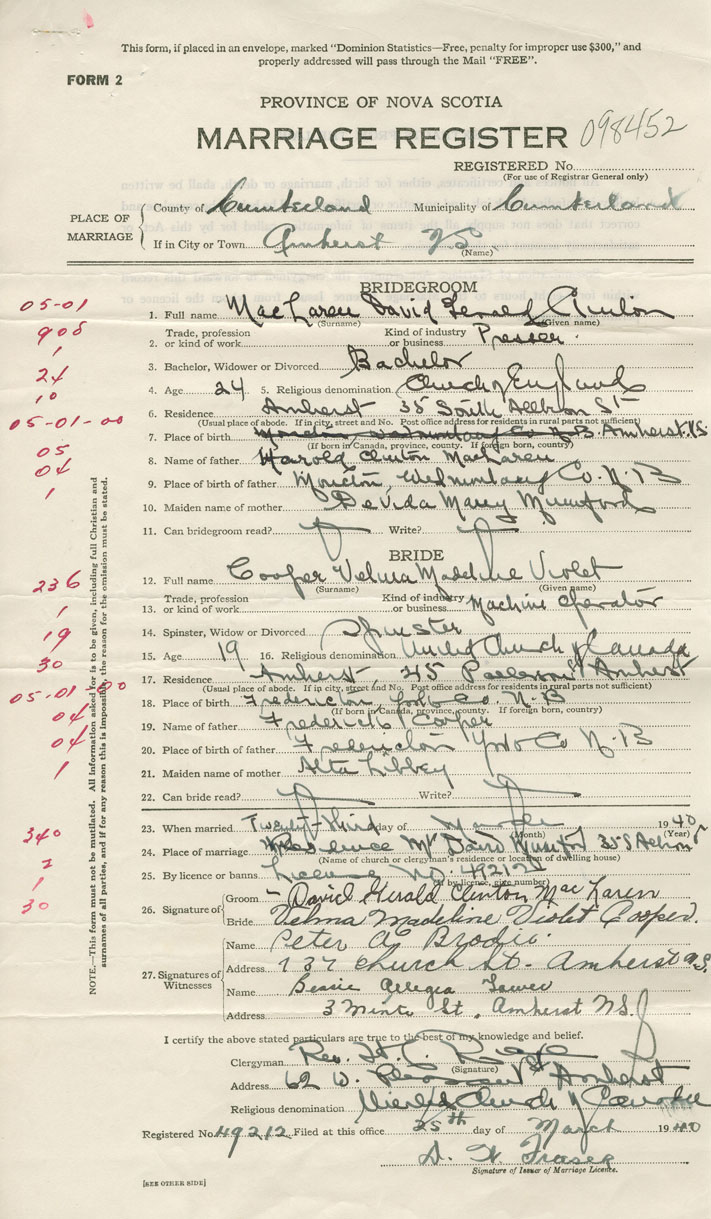 This form, if placed in an envelope, marked "Dominion Statistics—Free, penalty for improper use $300," and
properly addressed will pass through the Mail "FREE".
FORM 2
PROVINCE OF NOVA SCOTIA
MARRIAGE REGISTER 098452
REGISTERED No.
(For use of Registrar General only)
PLACE OF MARRIAGE
County of Cumberland Municipality of Cumberland
If in City or Town Amherst NS
(Name)
BRIDEGROOM
05-01
1. Full name MacLaren David Gerald Clinton
(Surname) (Given name)
908
Trade, profession Kind of industry
2. or kind of work or business Presser
1
3. Bachelor, Widower or Divorced Bachelor
24
4. Age 24 5. Religious denomination Church of England
10
6. Residence Amherst 35 South Albion St
(Usual place of abode. If in city, street and No. Post office address for residents in rural parts not sufficient)
05-01-00
7. Place of birth Amherst. N.S.
(If born in Canada, province, county. If foreign born, country)
05
8. Name of father Harold Clinton MacLaren
04
9. Place of birth of father Moncton, Westmorland Co. N.B
1
10. Maiden name of mother DeVida Mary Mumford
11. Can bridegroom read? Write?
BRIDE
12. Full name Cooper Velma Madeline Violet
(Surname) (Given name)
236
Trade, profession Kind of industry
13. or kind of work or business Machine Operator
1
14. Spinster, Widow or Divorced Spinster
19
15. Age 19 16. Religious denomination United Church of Canada
30
17. Residence Amherst, 45 Amherst
(Usual place of abode. If in city, street and No. Post office address for residents in rural parts not sufficient)
05-01-00
18. Place of birth Fredericton York Co. N.B
(If born in Canada, province, county. If foreign born, country)
04
19. Name of father Frederick Cooper
04
20. Place of birth of father Fredericton York Co N.B
1
21. Maiden name of mother Alta Libbey
22. Can bride read? Write?
23. When married Twenty-third day of March 1940
(Month) (Year)
340
24. Place of marriage Residence Mr David Mumford 35 S Albion
(Name of church or clergyman's residence or location of dwelling house)
2
25. By licence or banns License No. 49212
(If by licence, give number)
1
30
26. Signature of
Groom David Gerald Clinton MacLaren
Bride Velma Madeline Violet Cooper.
27. Signatures of Witnesses
Name Peter A. Brodie.
Address 137 Church St. Amherst N.S.
Name Bessie Allegra
Address 3 Minto St., Amherst N.S.
NOTE.—This form must not be mutilated. All information asked for is to be given, including full Christian and
surnames of all parties, and if for any reason this is impossible the reason for the omission must be stated.
I certify the above stated particulars are true to the best of my knowledge and belief.
Clergyman Rev.
(Signature)
Address 62 W. Pleasant St Amherst
Religious denomination United Church of Canada
Registered No. 49212 Filed at this office 25th day of March 1940
D. W. Fraser
Signature of Issuer of Marriage Licence.
[SEE OTHER SIDE]